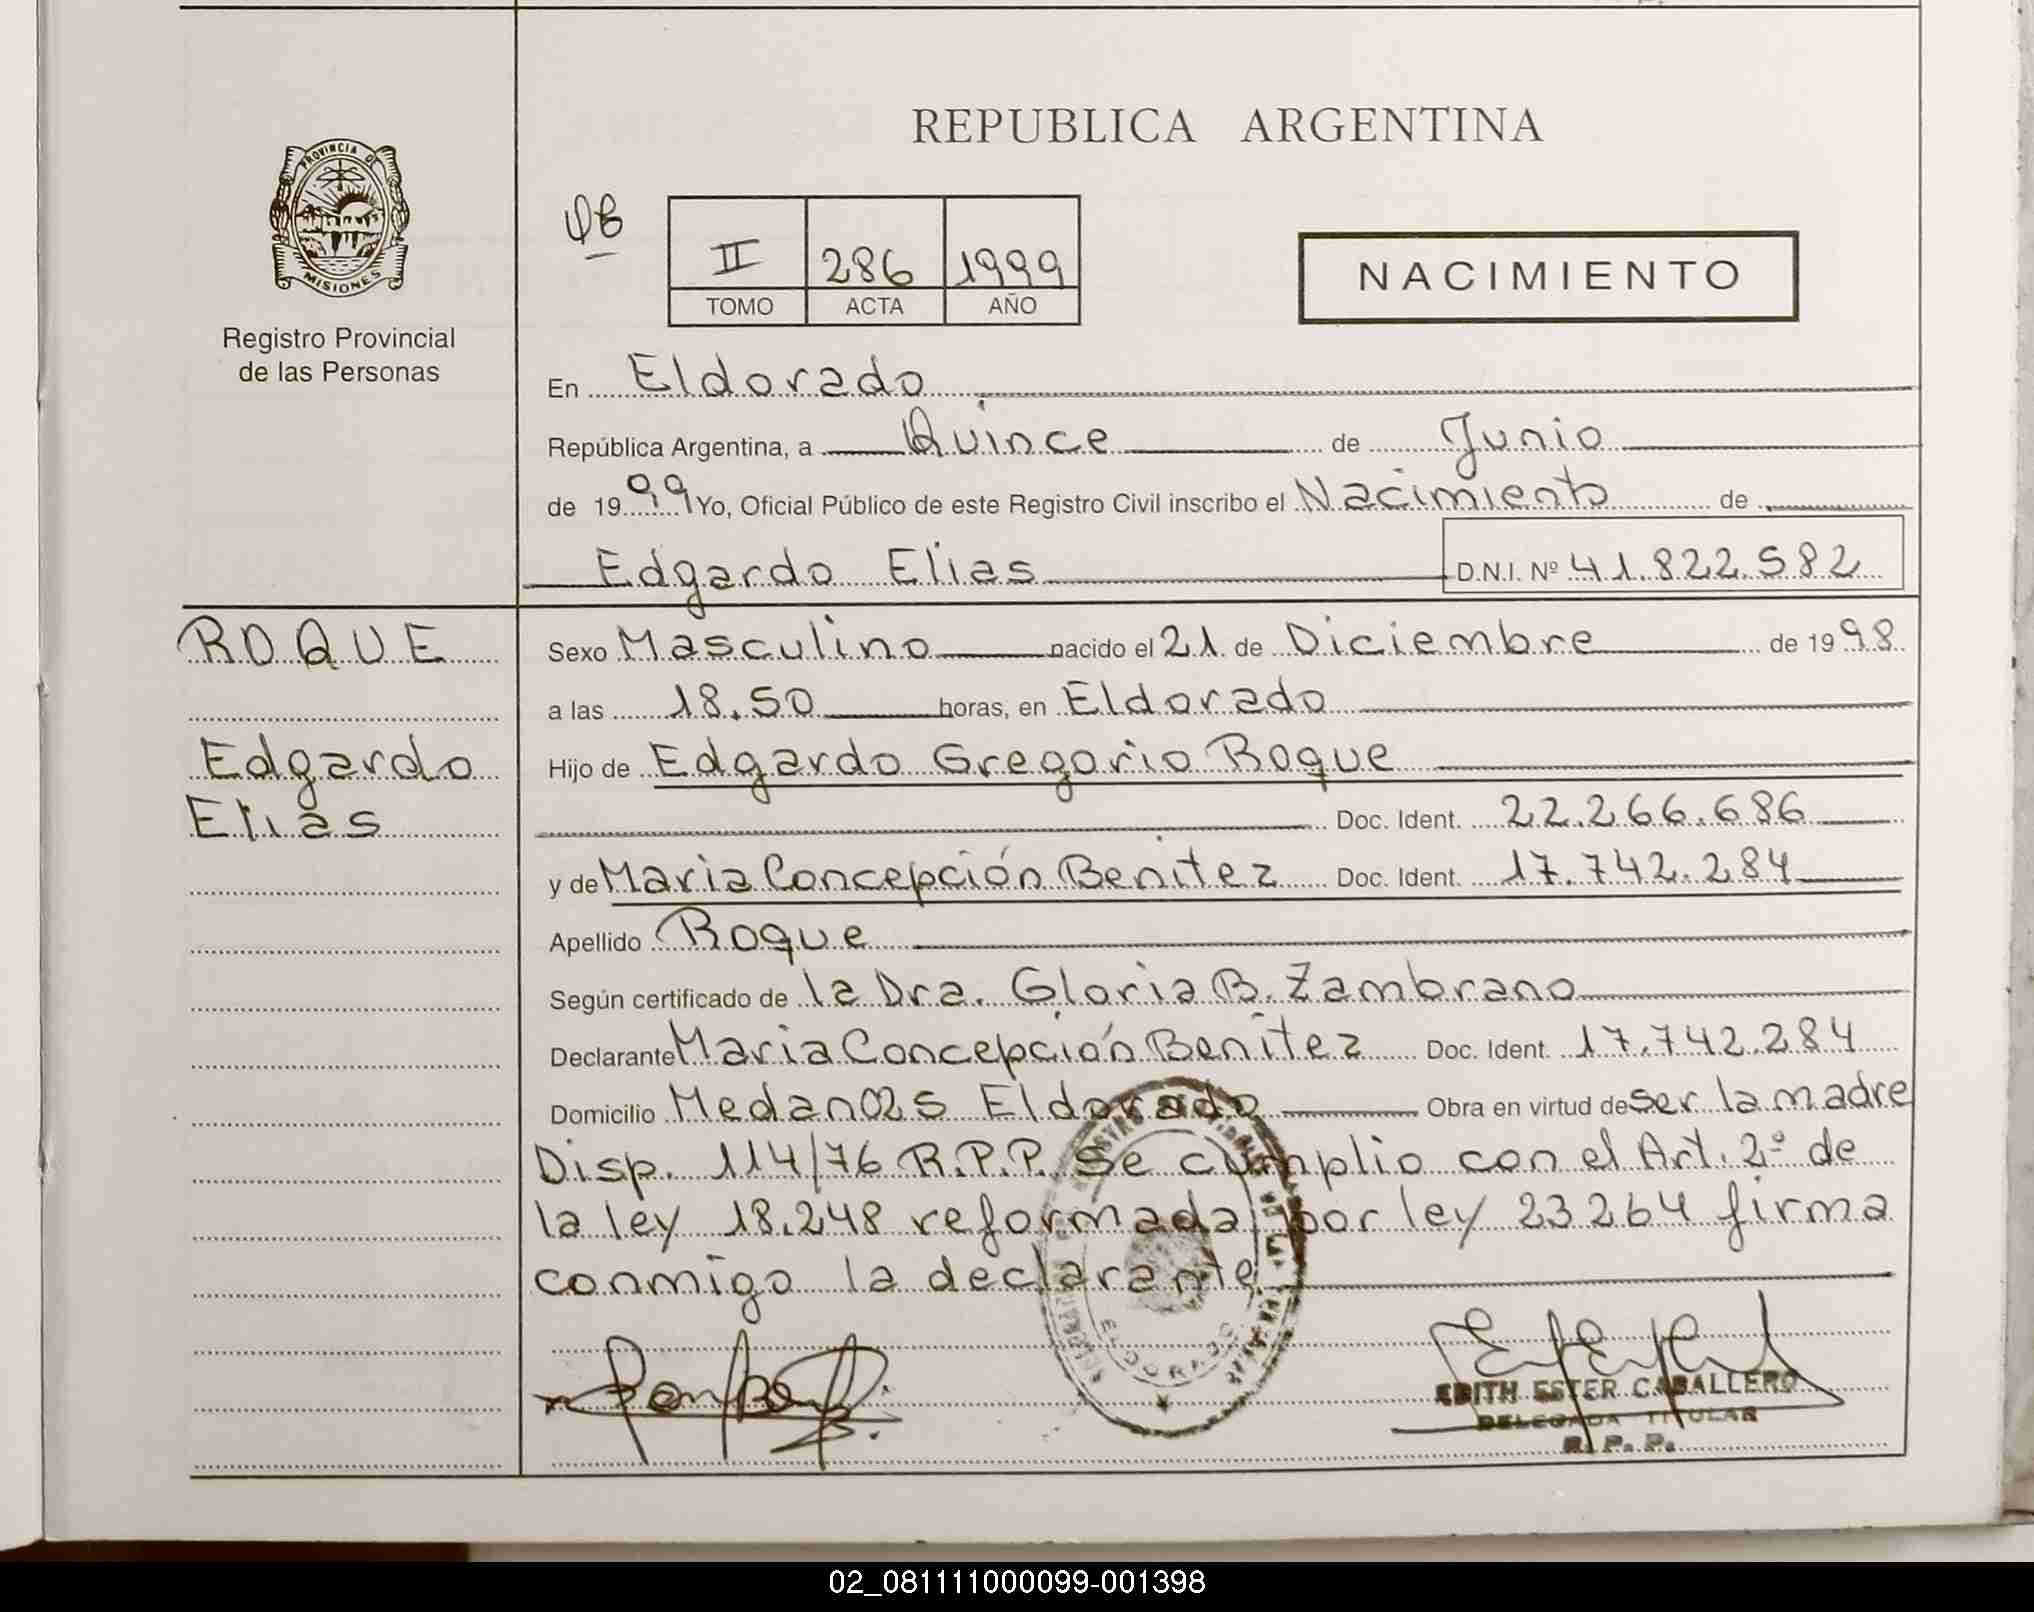 REPUBLICA ARGENTINA
PROVINCIA DE
MISIONES
Registro Provincial
de las Personas
II 286 1999
TOMO ACTA AÑO
NACIMIENTO
En Eldorado
República Argentina, a Quince de Junio
de 1999 Yo, Oficial Público de este Registro Civil inscribo el Nacimiento de
Edgardo Elias D.N.I. Nº 41.822.582
ROQUE
Edgardo
Elias
Sexo Masculino nacido el 21 de Diciembre de 1998
a las 18.50 horas, en Eldorado
Hijo de Edgardo Gregorio Roque
Doc. Ident. 22.266.686
y de Maria Concepción Benitez Doc. Ident. 17.742.284
Apellido Roque
Según certificado de la Dra. Gloria B. Zambrano
Declarante Maria Concepción Benitez Doc. Ident. 17.742.284
Domicilio Eldorado Obra en virtud de ser la madre
Disp. 114/76 R.P.P. se cumplio con el Art. 2º de
la ley 18.248 reformada por ley 23264 firma
conmigo la declarante
ELDORADO
EDITH ESTER CABALLERO
DELEGADA TITULAR
R. P. P.
02_081111000099-001398